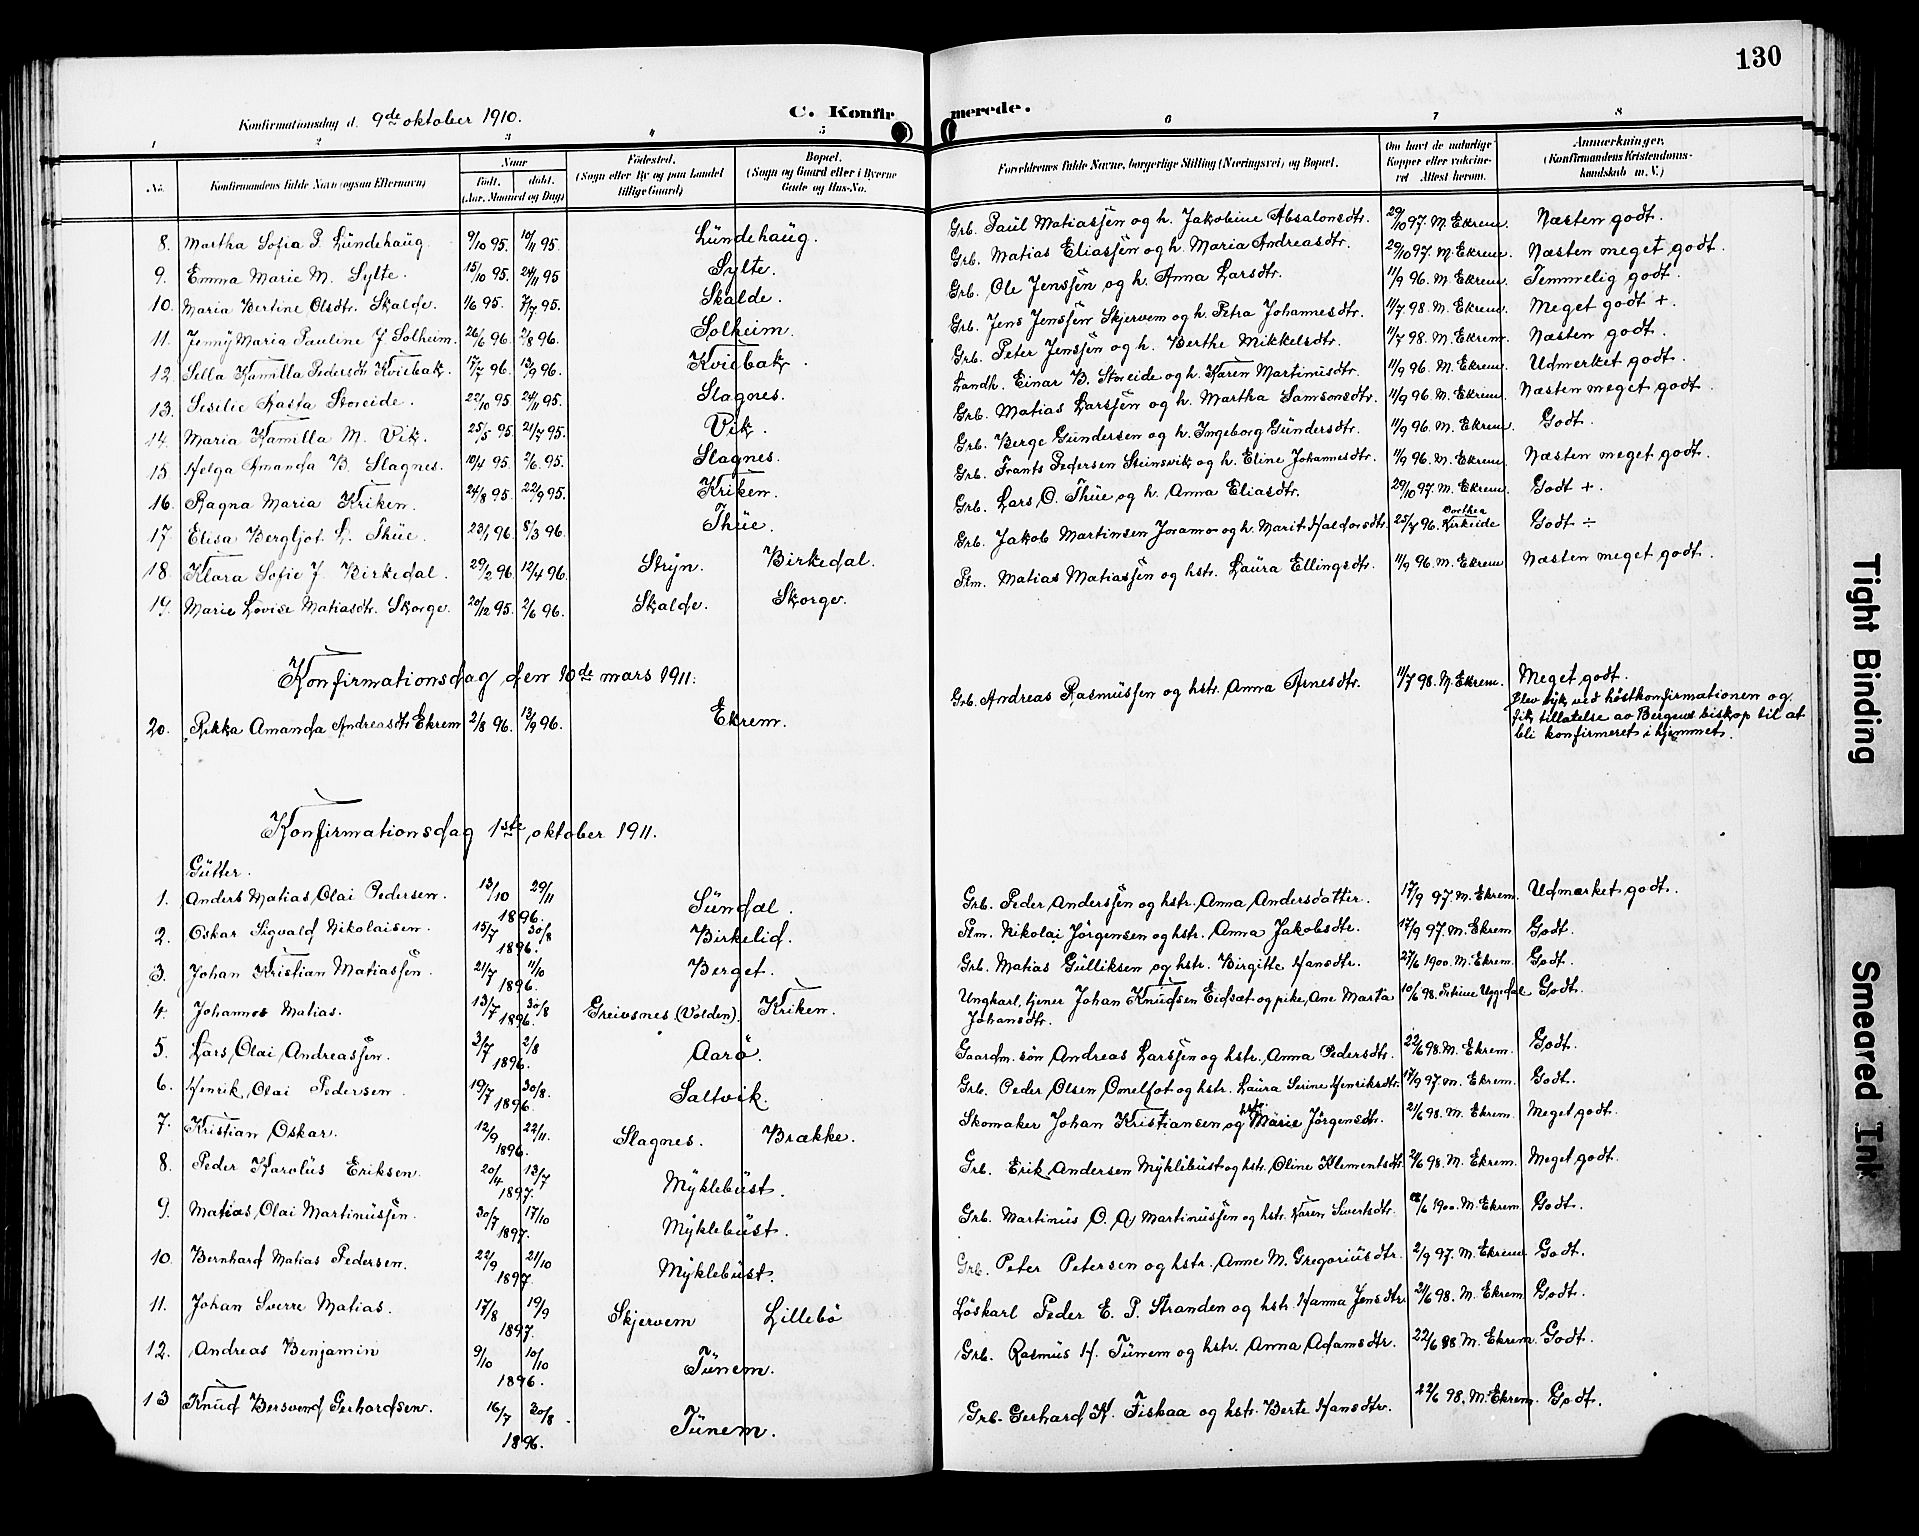 130
Konfirmationsdag d. 9de oktober 1910. C. Konfirmerede.
1 2 3 4 5 6 7 8
No. Konfirmandens fulde Navn (ogsaa Efternavn) Naar Født, døbt. (Aar, Maaned og Dag) Fødested. (Sogn eller By og paa Landet tillige Gaard) Bopæl. (Sogn og Gaard eller i Byerne Gade og Hus-No. Forældrenes fulde Navne, borgerlige Stilling (Næringsvei) og Bopæl. Om havt de naturlige Kopper eller vakcineret Attest herom. Anmærkninger, (Konfirmandens Kristendomskundskab m. V.)
8. Martha Sofia P. Lündehaüg. 9/10 95. 10/11 95. Lündehaüg. Grb. Paul Matiassen og h. Jakobine Absalonsdtr. 29/10 97. M. Ekrem. Næsten godt.
9. Emma Marie M. Sylte. 15/10 95. 24/11 95 Sylte. Grb. Matias Eliassen og h. Maria Andreasdtr. 29/10 97. M. Ekrem. Næsten meget godt.
10. Maria Bertine Olsdtr. Skalde. 1/6 95. 7/7 95. Skalde. Grb. Ole Jenssen og h. Anna Larsdtr. 11/9 96. M. Ekrem. Temmelig godt.
11. Jenny Maria Pauline J. Solheim. 26/6 96. 2/8 96. Solheim. Grb. Jens Jenssen Skjervem og h. Petra Johannesdtr. 11/7 98. M. Ekrem. Meget godt +.
12. Sella Kamilla Pedersdtr Kviebak. 17/7 96. 13/9 96. Kviebak. Grb. Peter Jenssen og h. Berthe Mikkelsdtr. 11/7 98. M. Ekrem. Næsten godt.
13. Sesilie Kasta Storeide. 22/10 95. 24/11 95. Slagnes. Landh. Einar B. Storeide og h. Karen Martinüsdtr. 11/9 96. M. Ekrem. Udmerket godt.
14. Maria Kamilla M. Vik. 25/5 95. 21/7 95. Vik. Grb. Matias Larssen og h. Martha Samsonsdtr. 11/9 96. M. Ekrem. Næsten meget godt.
15 Helga Amanda B. Slagnes. 10/4 95. 2/6 95. Slagnes. Grb. Berge Gündersen og h. Ingeborg Gündersdtr. 11/9 96. M. Ekrem. Godt.
16. Ragna Maria Kriken. 24/8 95. 22/9 95. Kriken. Grb. Frants Pedersen Steinsvik og h. Eline Johannesdtr. 11/9 96. M. Ekrem. Næsten meget godt.
17. Elisa Bergljot L. Thüe. 23/1 96. 8/3 96. Thüe. Grb. Lars O. Thüe og h. Anna Eliasdtr. 29/10 97. M. Ekrem. Godt +.
18. Klara Sofie J. Birkedal. 29/2 96. 12/4 96. Stryn. Birkedal. Grb. Jakob Martinsen Joramo og h. Marit Haldorsdtr. 25/7 96. Dorthea Kirkeide Godt ÷
19. Marie Lovise Matiasdtr. Skorge. 20/12 95. 2/6 96. Skalde. Skorge. Plm. Matias Matiassen og hstr. Laüra Ellingsdtr. 11/9 96. M. Ekrem Næsten meget godt.
Konfirmationsdag den 10de mars 1911.
20. Rikka Amanda Andreasdtr Ekrem 2/8 96. 13/9 96. Ekrem. Grb. Andreas Rasmüssen og hstr. Anna Arnesdtr. 11/7 98. M. Ekrem. Meget godt.
Blev syk ved høstkonfirmationen og
fik tillatelse av Bergens biskop til at
bli konfirmeret i hjemmet.
Konfirmationsdag 1ste oktober 1911.
Gütter.
1. Anders Matias Olai Pedersen. 13/10 29/11 1896. Sündal. Grb. Peder Anderssen og hstr. Anna Andersdatter. 17/9 97. M. Ekrem. Udmærket godt.
2. Oskar Sigvald Nikolaisen. 15/7 30/8 1896. Birkelid. Plm. Nikolai Jørgensen og hstr. Anna Jakobsdtr. 17/9 97. M. Ekrem Godt.
3. Johan Kristian Matiassen. 21/7 11/10 1896. Berget. Grb. Matias Gülliksen og hstr. Birgitte Hansdtr. 27/6 1900. M. Ekrem. Godt.
4. Johannes Matias. 13/7 30/8 1896. Greivsnes (Volden). Kriken. Ungkarl, tjener Johan Knudsen Eidsæt og pike, Ane Marta Johansdtr. 10/6 98. Petrine Uggedal Godt.
5. Lars Olai Andreassen. 3/7 2/8 1896. Aarø. Gaardm. søn Andreas Larssen og hstr. Anna Pedersdtr. 22/6 98. M. Ekrem. Godt.
6. Henrik Olai Pedersen 19/7 30/8. 1896. Saltvik. Grb. Peder Olsen Omelfot og hstr. Laüra Serine Henriksdtr. 17/9 97. M. Ekrem. Godt.
7. Kristian Oskar. 12/9 22/11. 1896. Slagnes. Brække. Skomaker Johan Kristiansen og hstr. Marie Jørgensdtr. 21/6 98. M. Ekrem. Meget godt.
8. Peder Karolüs Eriksen. 20/4 13/7 1897. Myklebüst. Grb. Erik Andersen Myklebüst og hstr. Oline Klementsdtr. 21/6 98. M. Ekrem. Meget godt.
9. Matias Olai Martinüssen. 30/7 17/10 1897. Myklebüst. Grb. Martinüs O. A. Martinüssen og hstr. Karen Sivertsdtr. /6 1900. M. Ekrem. Godt.
10. Bernhard Matias Pedersen. 22/9 21/10 1897. Myklebüst. Grb. Peter Petersen og hstr. Anne M. Gregoriüsdtr. 2/9 97. M. Ekrem. Godt.
11. Johan Sverre Matias. 17/8 19/9 1897. Skjervem Lillebø Løskarl Peder E. P. Stranden og hstr. Hanna Jensdtr. 21/6 98. M. Ekrem Godt.
12. Andreas Benjamin 9/10 10/10 1896. Tünem. Grb. Rasmüs H. Tünem og hstr. Anna Adamsdtr. 22/6 98 M. Ekrem. Godt.
13 Knüd Bersvend Gerhardsen. 16/7 30/8. 1896. Tünem. Grb. Gerhard K. Fiskaa og hstr. Berte Hansdtr. 22/6 98. M. Ekrem. Godt.
Tight Binding
Smeared Ink